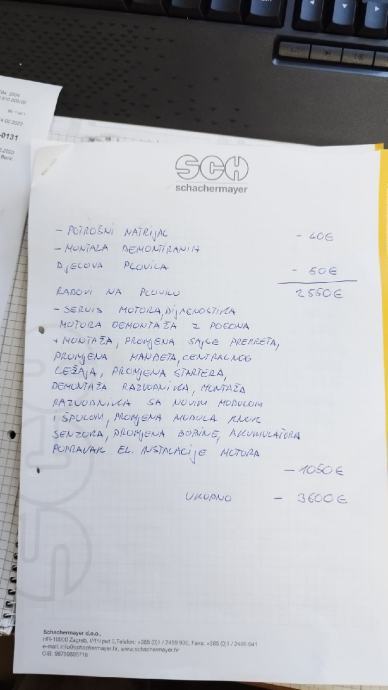 -0131
SCH
schachermayer
- POTROŠNI MATRIJAL - 40€
- MONTAŽA DEMONTIRANIH
DJELOVA PLOVILA - 60€
RADOVI NA PLOVILU 2550€
- SERVIS MOTORA, DIJAGNOSTIKA
MOTORA DEMONTAŽA Z POGONA
+ MONTAŽA, PROMJENA SAJLE PREKRETA,
PROMJENA MANŽETA, CENTRALNOG
LEŽAJA, PROMJENA STARTERA,
DEMONTAŽA RAZVODNIKA, MONTAŽA
RAZVODNIKA SA NOVIM MODULOM
I ŠPULOM, PROMJENA MODULA KNOK
SENZORA, PROMJENA BOBINE, AKUMULATORA
POPRAVAK EL. INSTALACIJE MOTORA
- 1050€
UKUPNO - 3600€
Schachermayer d.o.o.,
HR-10000 Zagreb, Telefon: +385 (0)1 /
www.schachermayer.hr